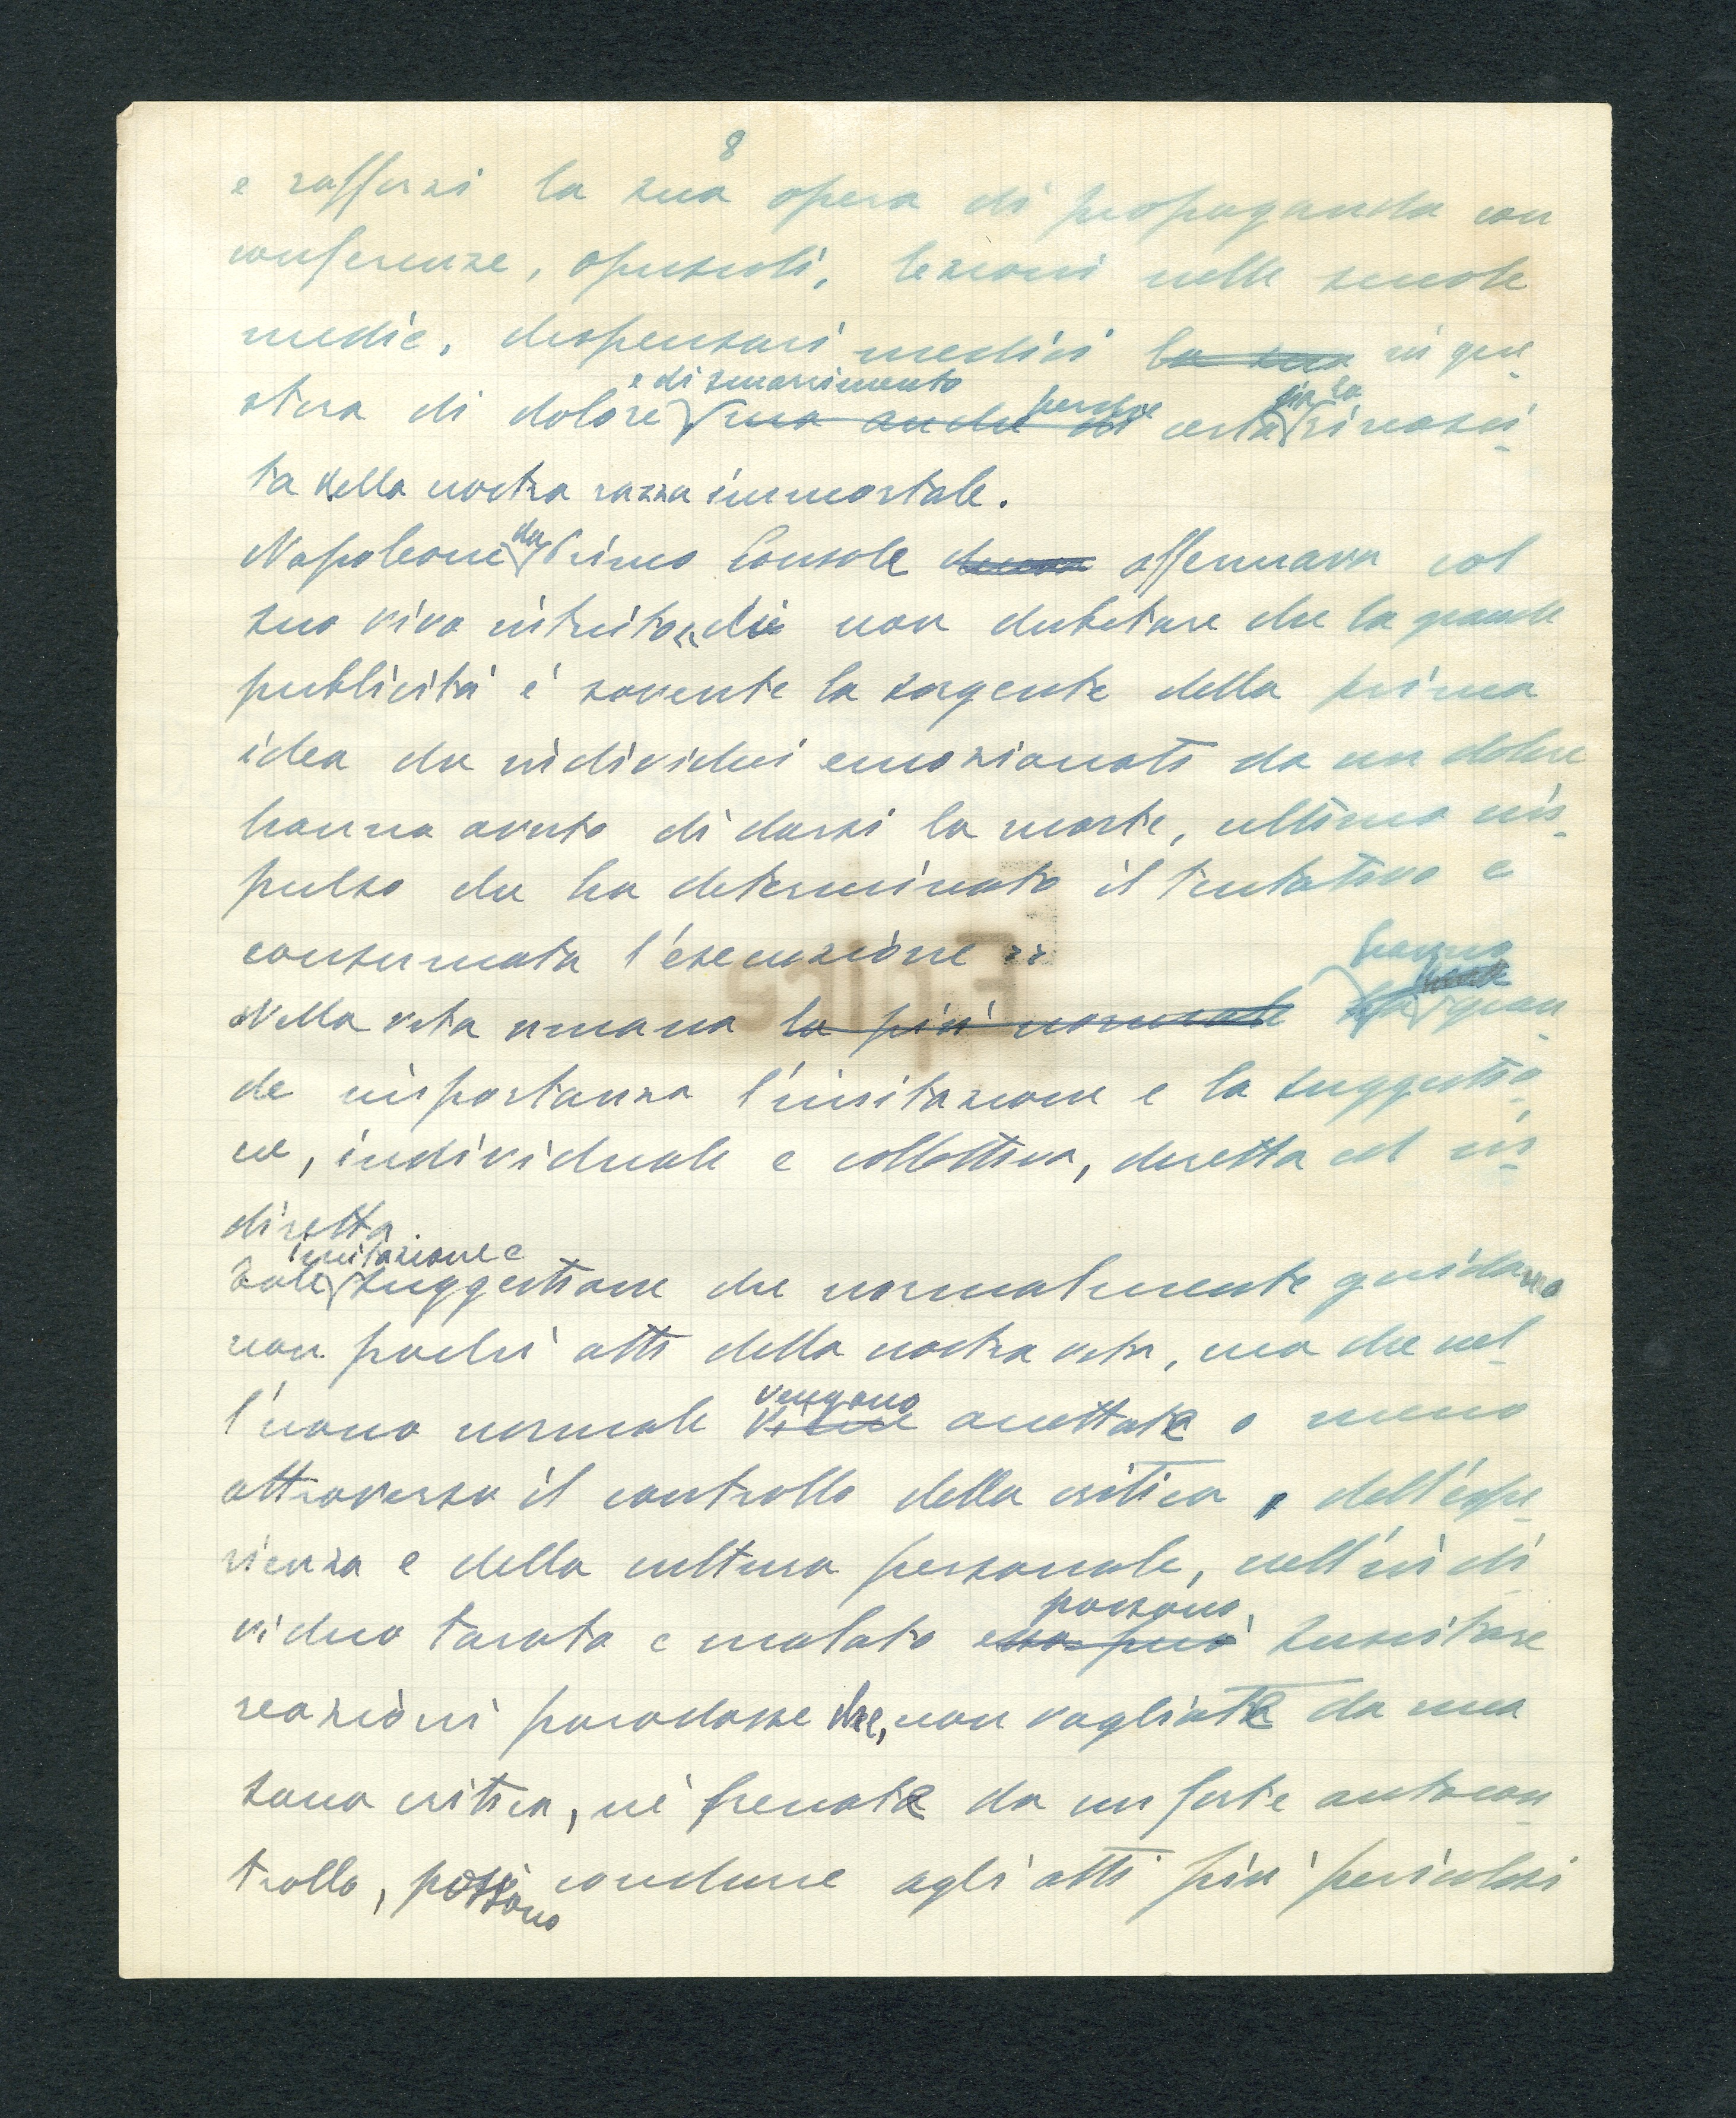 8
e rafforzi la sua opera di propaganda con
conferenze, opuscoli, lezioni nelle scuole
medie, dispensari medici la sua in que-
st'ora di dolore e di smarrimento ma anche di perché certa sia la rinasci-
ta della nostra razza immortale.
Napoleone da Primo Console affermava col
suo vivo intuito „ di non dubitare che la grande
pubblicità é sovente la sorgente della prima
idea che individui emozionati da un dolore
hanno avuto di darsi la morte, ultimo im-
pulso che ha determinato il tentativo e
consumata l'esecuzione "
Nella vita umana la più normale ha hanno gran-
de importanza l'imitazione e la suggestio-
ne, individuale e collettiva, diretta ed in-
diretta.
Tale imitazione e suggestione che normalmente guidano
non pochi atti della nostra vita, ma che nel-
l'uomo normale viene vengono accettate o meno
attraverso il controllo della critica, dell'espe-
rienza e della cultura personale, nell'indi-
viduo tarato e malato essa può possono suscitare
reazioni paradosse che, non vagliate da una
sana critica, nè frenate da un forte autocon-
trollo, possono condurre agli atti più pericolosi